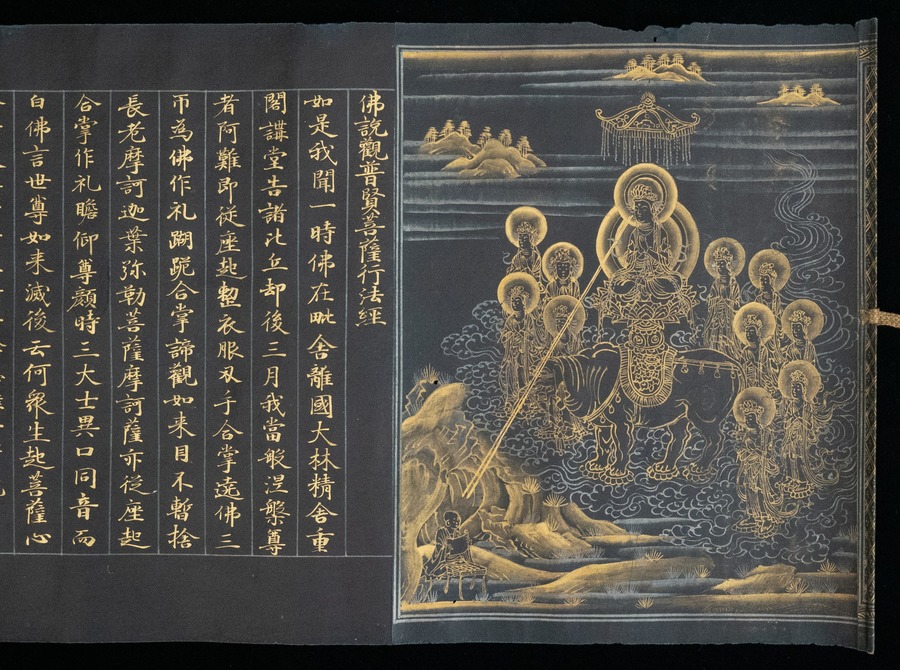 佛說觀普賢菩薩行法經
如是我聞一時佛在毗舍離國大林精舍重
閣講堂告諸比丘却後三月我當般涅槃尊
者阿難即從座起整衣服叉手合掌遶佛三
帀為佛作礼䠒跪合掌諦觀如来目不暫捨
長老摩訶迦葉弥勒菩薩摩訶薩亦從座起
合掌作礼瞻仰尊顔時三大士異口同音而
白佛言世尊如来滅後云何衆生起菩薩心